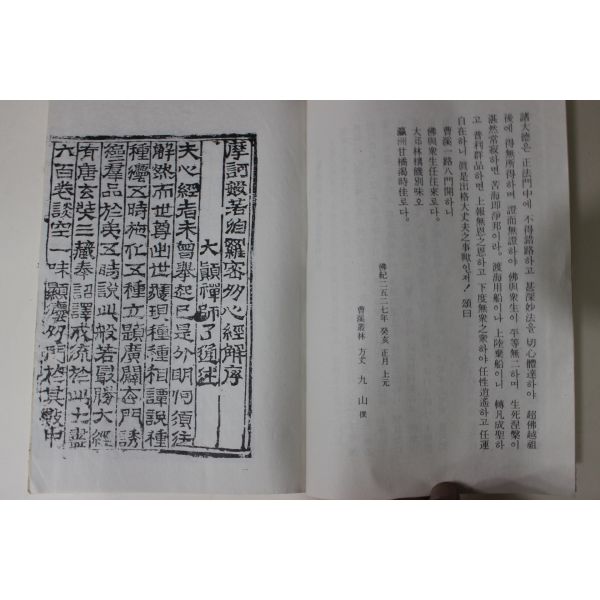 諸大德은 正法門中에 不得錯路하고 甚深妙法을 切心體達하야 超佛越祖
後에 得無所得하며 證而無證하야 佛與衆生이 平等無二하며 生死涅槃이
湛然常寂하면 苦海卽淨邦이라. 渡海用船이나 上陸棄船이니 轉凡成聖하
고 普利群品하면 上報無恩之恩하고 下度無衆之衆하야 任性逍遙하고 任運
自在하니 眞是出格大丈夫之事歟인저! 頌曰
曹溪一路八門開하니
佛與衆生任往來로다.
大邱林檎餓別味오
瀛州甘橘渴時佳로다.
佛紀二五二七年 癸亥 正月 上元
曹溪叢林 方丈 九山 撰
摩訶般若波羅密多心經解序
大顚禪師了通述
夫心經者未曾擧起已是分明何須徃
解然而世尊出世 現種種相譚說種
種 五時施化五種立題廣闢玄門誘
羣品於第五時說此般若最勝大經
有唐玄奘三藏奉詔譯成流於此土盡
六百卷談空一味顯 於其數中